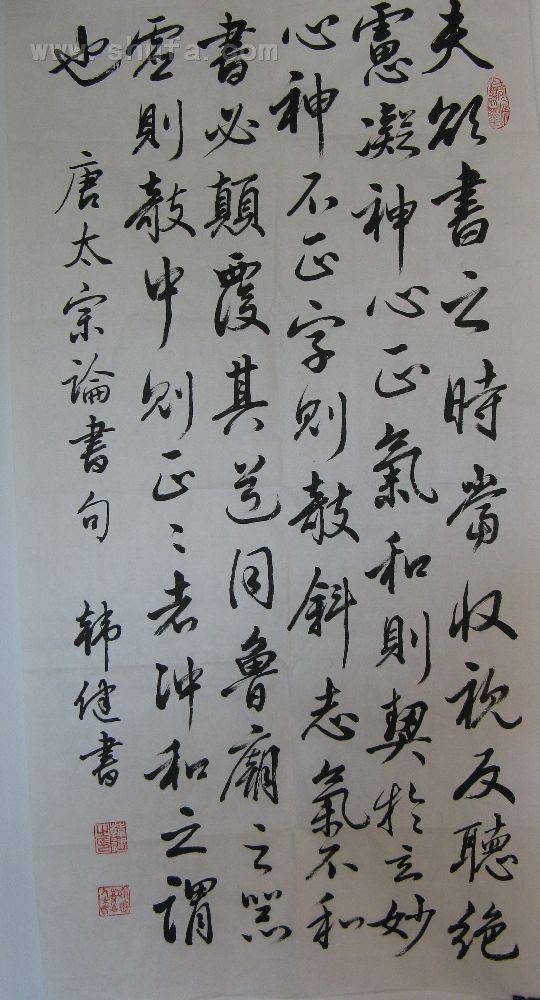 夫欲書之時當收視反聽絕
慮凝神心正氣和則契於玄妙
心神不正字則敧斜志氣不和
書必顛覆其道同魯廟之器
虛則敧中則正〻者沖和之謂
也
唐太宗論書句 韩健書
www.shufa.com